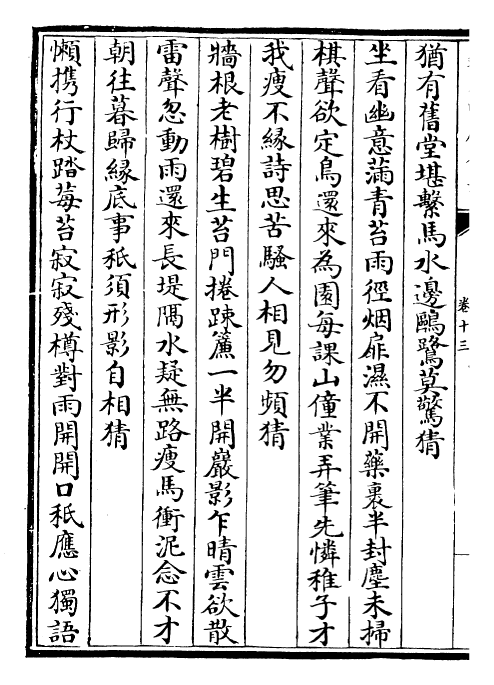 猶有舊堂堪繫馬水邊鷗鷺莫驚猜
坐看幽意滿青苔雨徑烟扉濕不開藥裹半封塵未掃
棋聲欲定鳥還來為園每課山僮業弄筆先憐稚子才
我瘦不緣詩思苦騷人相見勿頻猜
牆根老樹碧生苔門捲疎簾一半開巖影乍晴雲欲散
雷聲忽動雨還來長堤隔水疑無路瘦馬衝泥念不才
朝往暮歸緣底事秖須形影自相猜
懶携行杖踏莓苔寂寂殘樽對雨開開口秖應心獨語
卷十三